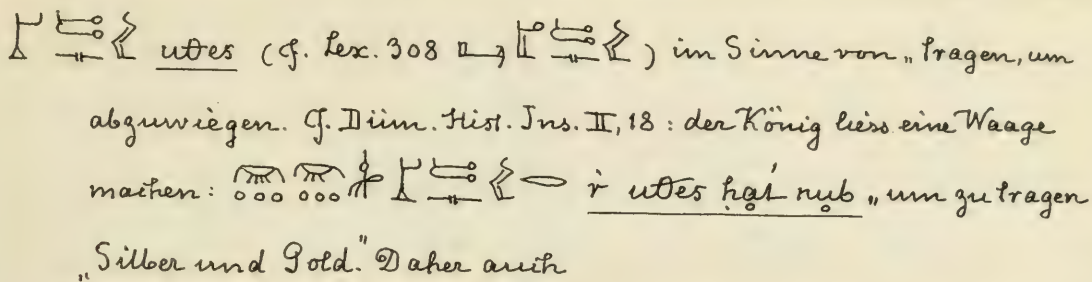 utes (cf. Lex. 308 ) im Sinne von „tragen, um
abzuwiegen. Cf. Düm. Hist. Ins. II, 18 : der König liess eine Waage
machen : ṙ utes ḥat́ nub „um zu tragen
„Silber und Gold.” Daher auch